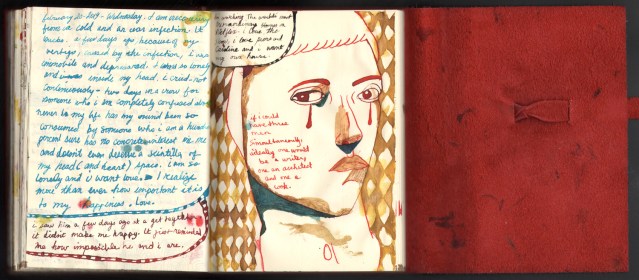 february 20. 2007 - Wednesday. I am recovering
from a cold and an ear infection. It
sucks. a few days ago because of my
vertigo, caused by the infection, I was
immobile and depressed. I was so lonely
and inside my head. I cried. not
continuously - two days in a row for
someone who i am completely confused
never in my life has my mind been so
consumed by someone who i am a hund-
percent sure has no concrete interest in me
and doesn't even deserve a scintilly of
my head (and heart) space. I am so
lonely and i want love. I realize
more than ever how important it is
to my happiness. Love.
I saw him a few days ago at a get together
it didn't make me happy. It just reminded
me how impossible he and i are.
watching The
I love the
and i want
my own house
if i could
have three
men
simultaneously,
ideally one would
be a writer,
one an architect
and one a
cook.